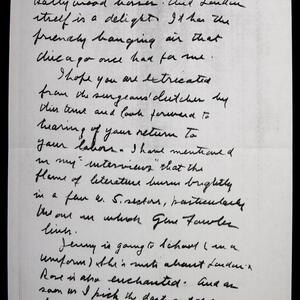 Hollywood horses. And London
itself is a delight. It has the
friendly banging air that
Chicago once had for me.
I hope you are extricated
from the surgeons' clutches by
this time and look forward to
hearing of your return to
your labors. I have mentioned
in my "interviews" that the
flame of literature burns brightly
in a few U.S. sectors, particularly
the one in which Gene Fowler
links.
Jenny is going to School (in a
uniform) She's nuts about London.
Rose is also enchanted. And as
soon as I pick the